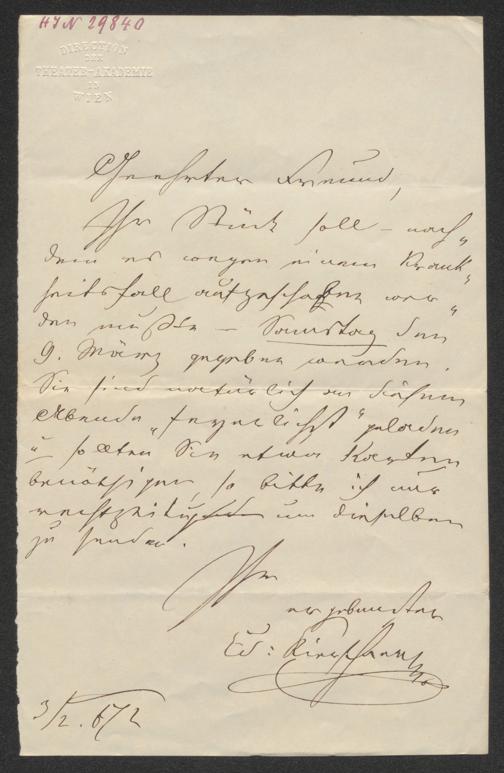 HIN 29840
DIRECTION
DER
THEATER-AKADEMIE
IN
WIEN
Geehrter Freund,
Ihr Stück soll – nach„
dem es wegen einem Krank„
heitsfall aufgeschoben wer„
den mußte – Samstag den
9. März gegeben werden.
Sie sind natürlich an diesem
Abende „feyerlichst“ geladen
u sollten Sie etwa Karten
benöthigen, so bitte ich nur
rechtzeitig um dieselben
zu senden.
Ihr
ergebenster
Ed:
3/2. 872